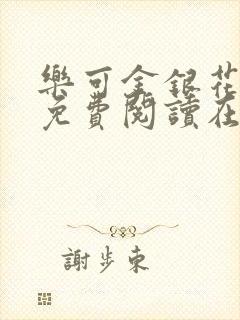 樂可金銀花
免費閱讀在
謝步東